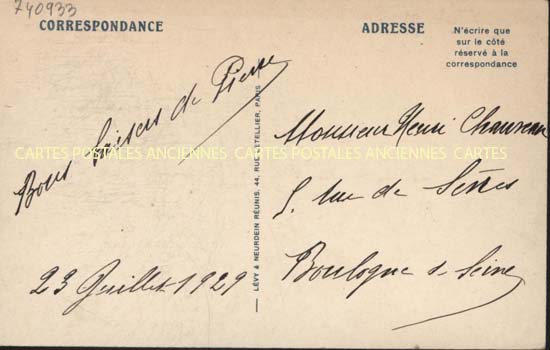 740933
CORRESPONDANCE
ADRESSE
N'écrire que
sur le côté
réservé à la
correspondance
Bons baisers de Pierre
23 Juillet 1929
LÉVY & NEURDEIN RÉUNIS, 44, RUE LETELLIER, PARIS
Monsieur Henri Chauveau
5, rue de Sèvres
Boulogne s. Seine
CARTES POSTALES ANCIENNES CARTES POSTALES ANCIENNES CARTES